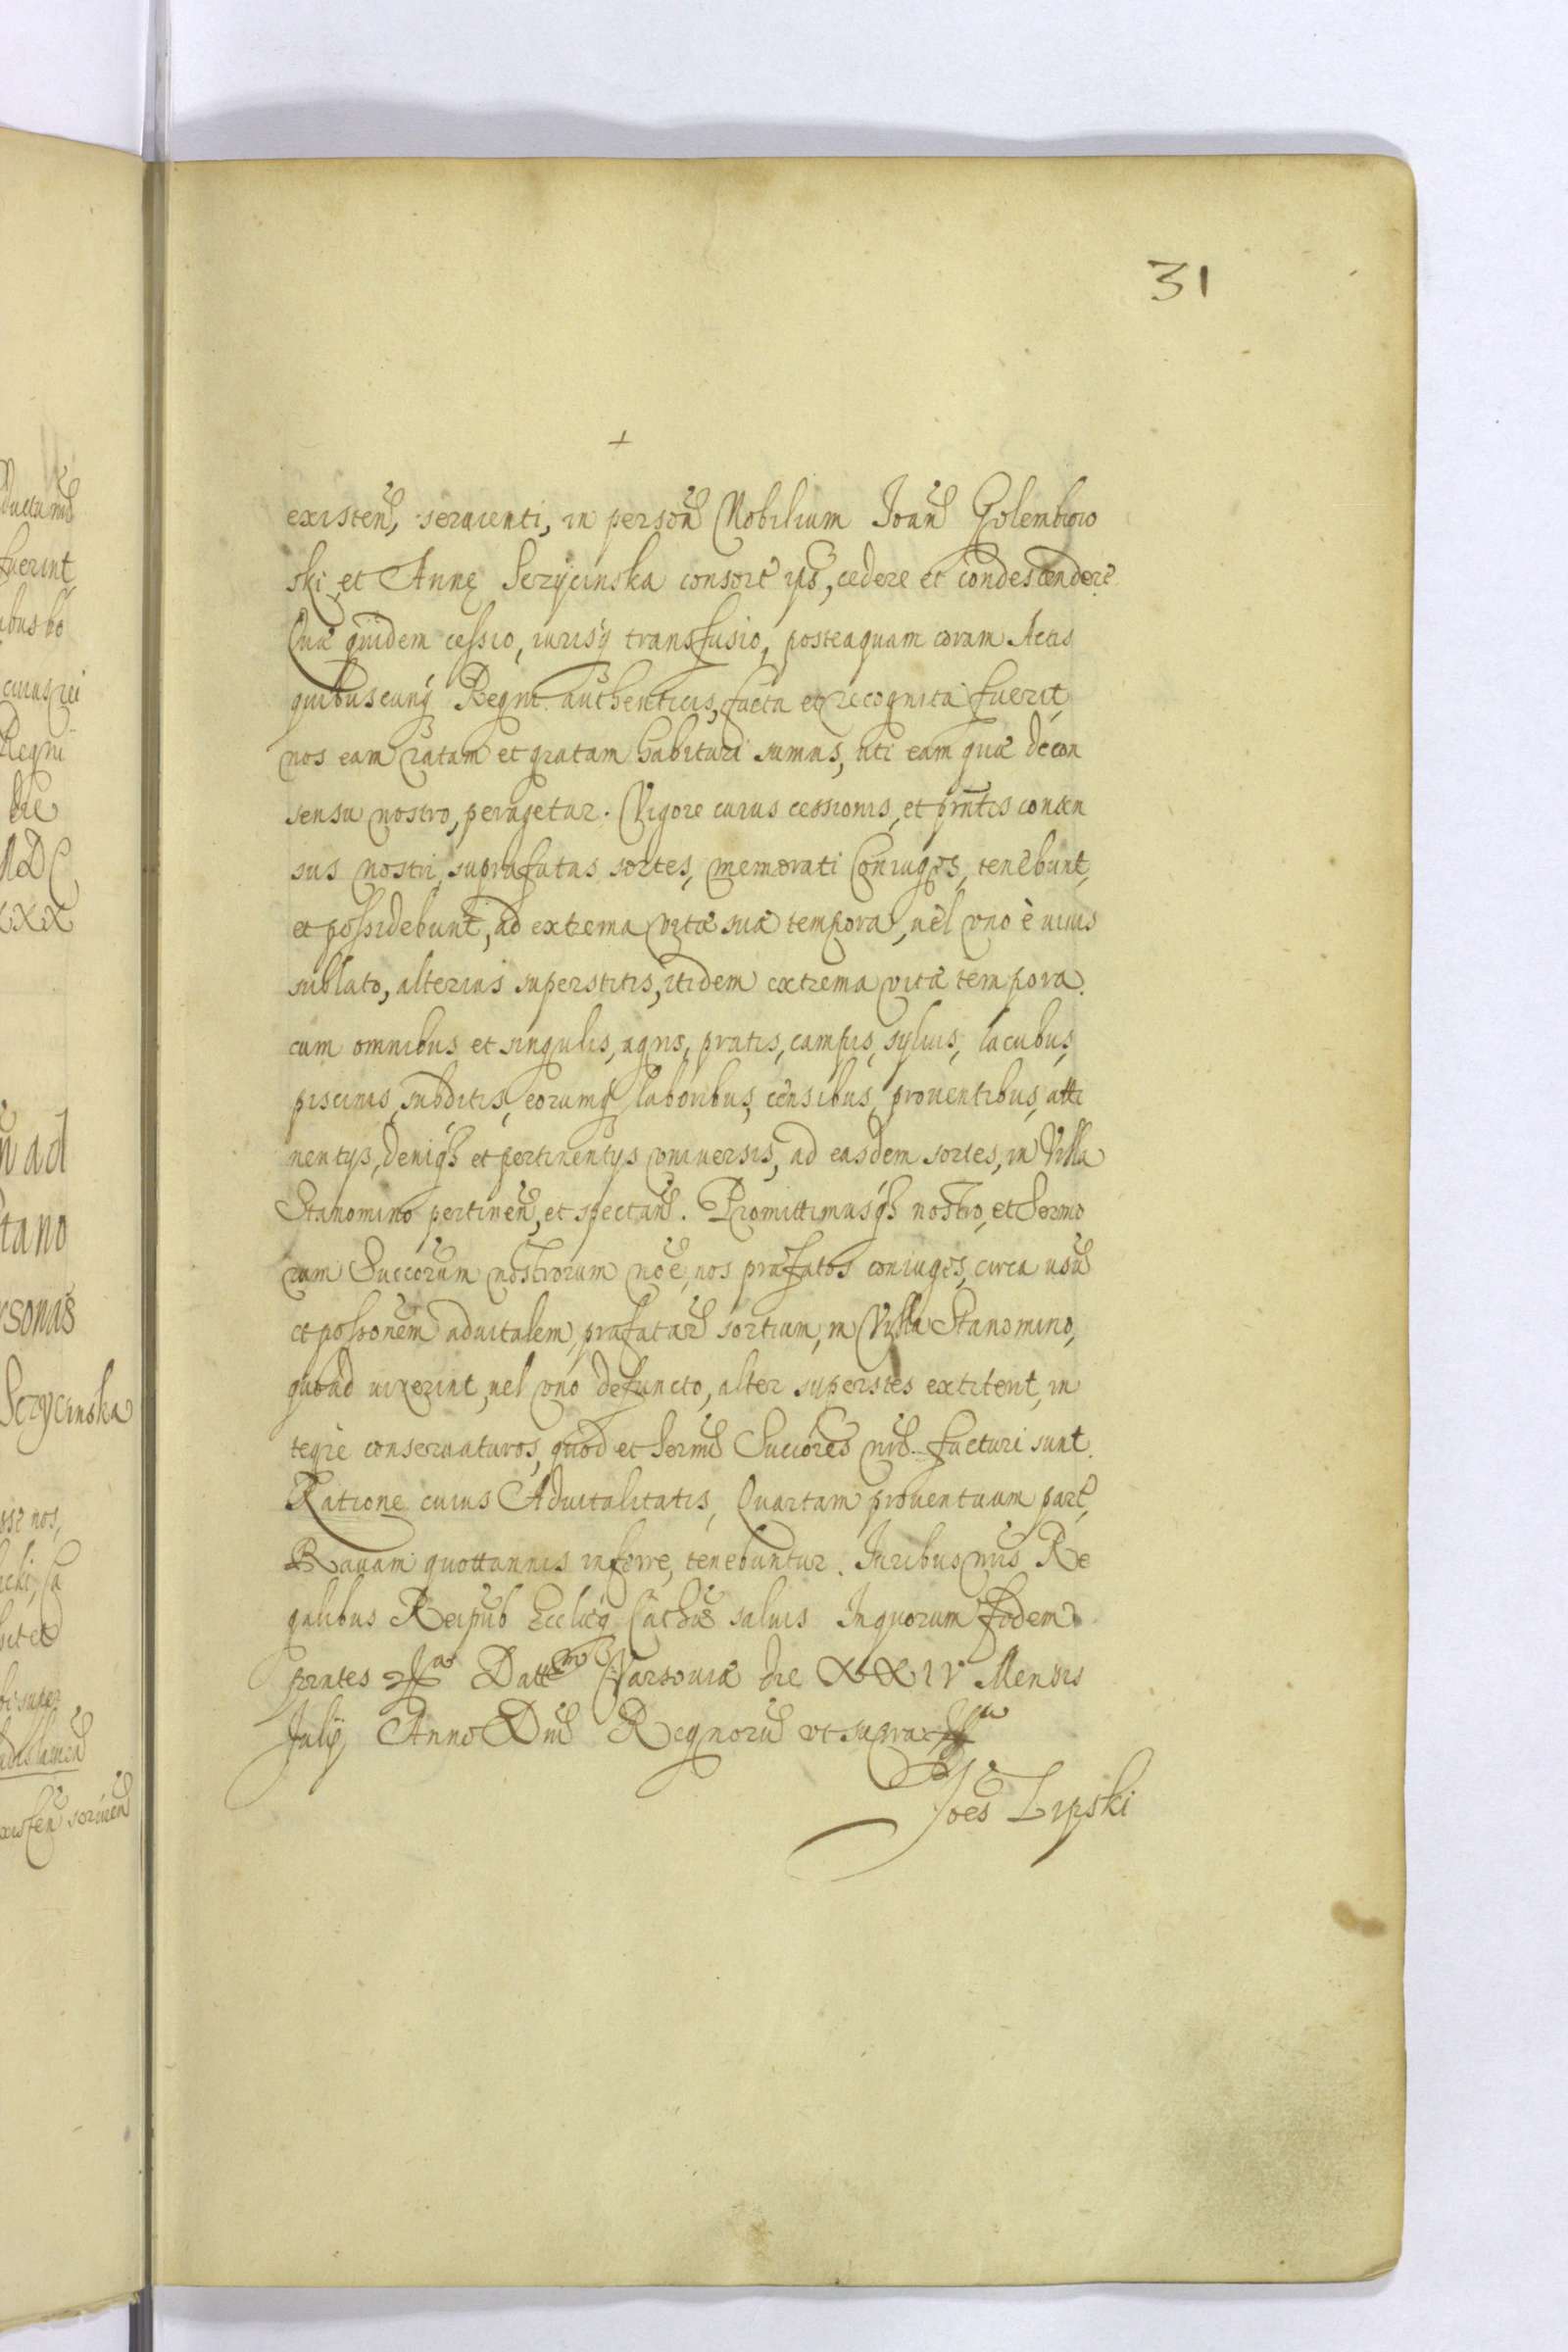 31
+
existen, seruienti, in person Nobilium Joan Golembiow
ski, et Annę Serzycinska consort ips, cedere et condescendere.
Quæ quidem cessio, iurisq transfusio, posteaquam coram Actis
quibuscunq Regni authenticis, facta et recognita fuerit,
nos eam ratam et gratam habituri sumus, uti eam quæ de con
sensu nostro, peragetur. Vigore cuius cessionis, et prntis consen
sus nostri, suprafatas sortes, memorati Coniuges, tenebunt,
et possidebunt, ad extrema vitæ suæ tempora, uel vno è uiuis
sublato, alterius superstitis, itidem extrema vitæ tempora.
cum omnibus et singulis, agris, pratis, campis, syluis, lacubus,
piscinis, subditis, eorumq laboribus, censibus, prouentibus, atti
nentys, deniq et pertinentys vniuersis, ad easdem sortes, in Villa
Stanomino pertinen, et spectan. Promittimusq nostro, et Sermo
rum Succorum nostrorum noe, nos præfatos coniuges, circa usu
et possonem aduitalem, præfatar sortium, in Villa Stanomino,
quoad uixerint, uel vno defuncto, alter superstes extiterit, in
tegre conseruaturos, quod et Sermi Succores nri facturi sunt.
Ratione cuius Aduitalitatis, Quartam prouentuum part,
Rauam quottannis inferre, tenebuntur. Juribus nris Re
galibus Reipub Ecclicq Cathæ saluis In quorum fidem
prntes Datt Varsouiæ die XXIV Mensis
July Anno Dni Regnoru vt supra
Joes Lipski
ductumus
fuerint
ibus bo
cuius rei
Regni
die
MDC
XXX
n ad
tano
rsonis
Serzycinska
ost nos,